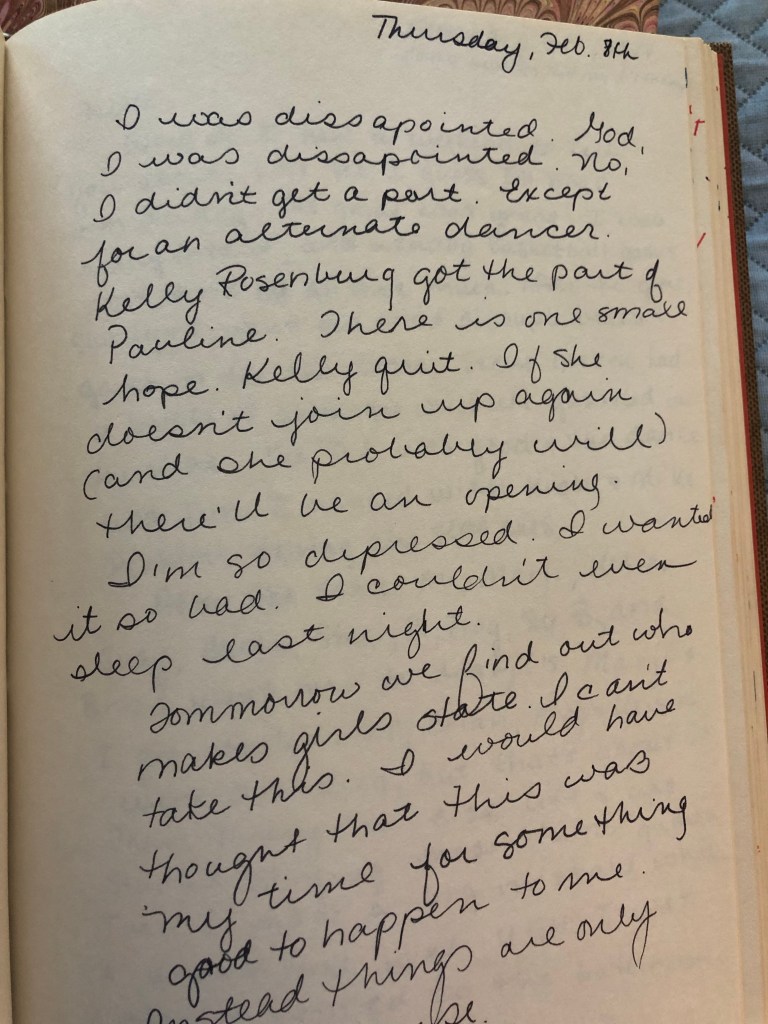 Thursday, Feb. 8th
I was dissapointed. God,
I was dissapointed. No,
I didn't get a part. Except
for an alternate dancer.
Kelly Rosenburg got the part of
Pauline. There is one small
hope. Kelly quit. If she
doesn't join up again
(and she probably will)
there'll be an opening.
I'm so depressed. I wanted
it so bad. I couldn't even
sleep last night.
Tommorrow we find out who
makes girls state. I can't
take this. I would have
thought that this was
my time for something
good to happen to me.
Instead things are only